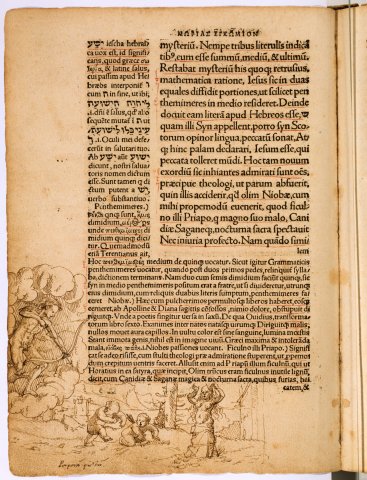 ΜΩΡΙΑΣ ΕΓΚΩΜΙΟΝ
ישע iescha hebrai
ca vox est, id signifi
cans, quod græce
& latine salus,
cus passim apud He
bræos interponit
cum in fine, ut ibi,
.i. dñi ē salus, qd̓ alio
sequēte mutat̃ i ut
.i. Oculi mei defe
cerūt in salutari tuo.
Ab ישע aūt ישוע
dicunt, nostri salua
toris nomen dictum
esse. Sunt tamen q̃ di
ctum putent a
uerbo substantiuo.
Penthemimeres.)
græcis quinq; sunt,
dimidium,
unde
dimidium quinq; dici
tur. Quemadmodū
enī Terentianus ait,
mysteriū. Nempe tribus literulis indicā
tibꝰ, eum esse summū, mediū, & ultimū.
Restabat mysteriū his quoq; retrusius,
mathematica ratione, Iesus sic in duas
equales diffidit portiones, ut scilicet pen
themimeres in medio resideret. Deinde
docuit eam literā apud Hebreos esse, ש
quam illi Syn appellent, porro syn Sco
torum opinor lingua, peccatū sonat, At
q; hinc palam declarari, Iesum esse, qui
peccata tolleret mūdi. Hoc tam nouum
exordiū sic inhiantes admirati sunt oēs,
præcipue theologi, ut parum abfuerit,
quin illis accideret, qd̓ olim Niobæ, cum
mihi propemodū euenerit, quod ficul
no illi Priapo, q magno suo malo, Cani
diæ Saganeq;, nocturna sacra spectauit
Nec iniuria profecto. Nam quādo simi
lem
Hoc medium de quinq; uocatur. Sicut igitur Grammaticis
penthemimeres uocatur, quando post duos primos pedes, relinquit̃ sylla
ba, dictionem terminans. Nam duo cum semis dimidium faciūt quinq;, sic
syn in medio penthemimeris positum erat a fratre, ut si diuideretur, utrunq;
eius dimidium, cum reliquis duabus literis sumptum, penthemimeres fa
ceret Niobæ.) Hæc cum pulcherrimos permultosq; liberos haberet, eosq;
cerneret, ab Apolline & Diana sagittis cōfossos, nimio dolore, obstupuit di
riguitq;. Vnde a poetis fingitur uersa in saxū. De qua Ouidius, transforma
torum libro sexto. Examines inter natas natasq; uirumq; Diriguitq; malis,
nullos mouet aura capillos. In uultu color est sine sanguine, lumina mœstis
Seant immota genis, nihil est in imagine uiuū.
mala, Niobes passiones uocant. Ficulno illi Priapo.) Signifi
cat se adeo risisse, cum stulti theologi præ admiratione stuperent, ut
stm crepitum uentris faceret. Allusit enim ad Priapū illum ficulnū, qui ut
Horatius in ea satyra, quæ incipit, Olim truncus eram ficulnus inutile lignū,
dicit, cum Canidiæ & Saganæ magica & nocturna sacra, quibus furias, he
catem, &